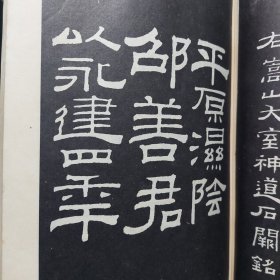 右嵩山太室神道石闕銘
平原濕陰
邵善君
以永建四年